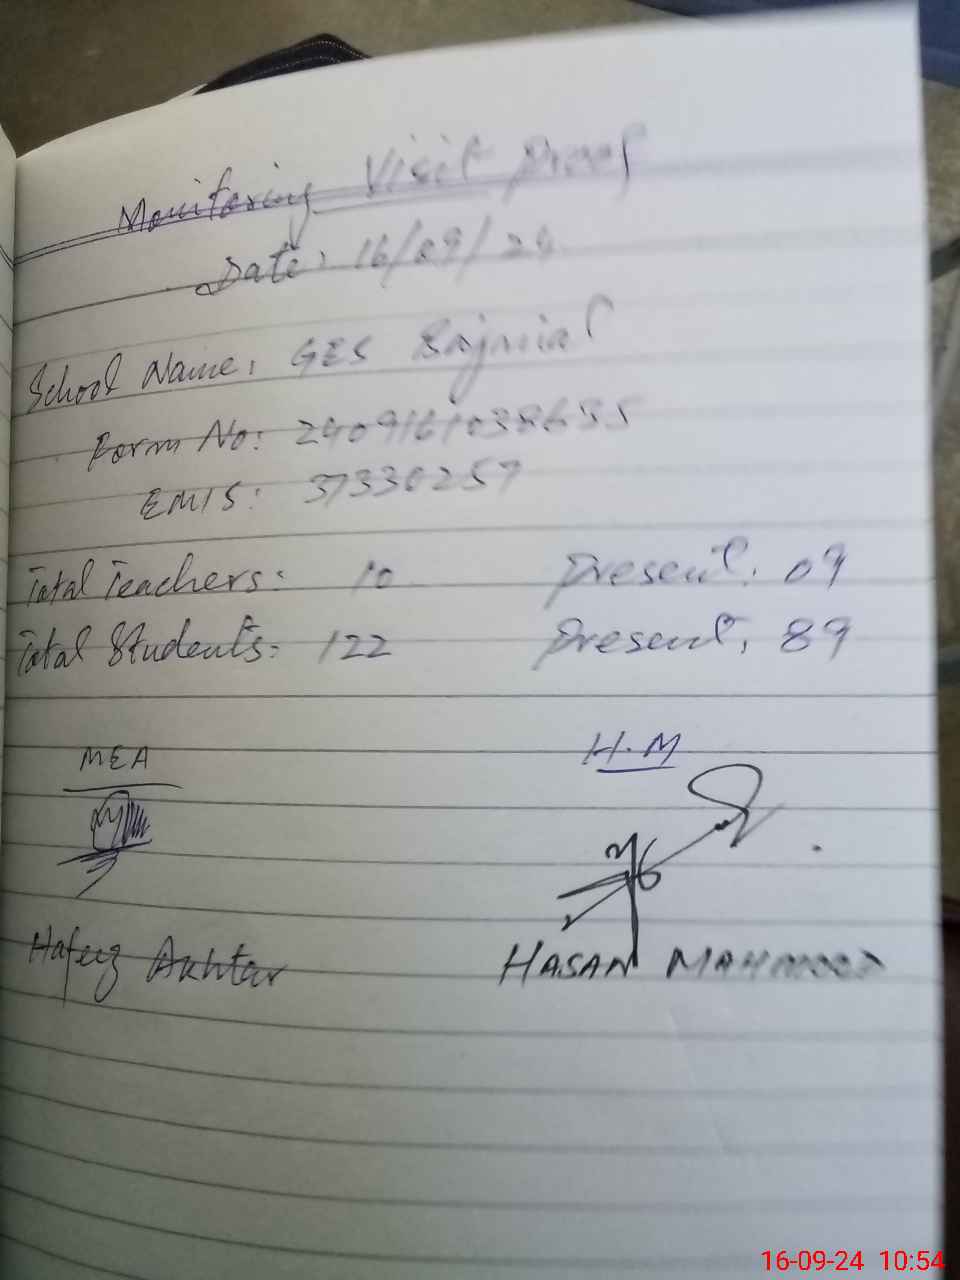 Monitoring Visit Proof
Date: 16/09/24
School Name: GES Bajnial
Form No: 2409161038655
EMIS: 37330257
Total Teachers: 10 Present: 09
Total Students: 122 Present: 89
MEA H.M
Hafeez Akhtar HASAN MAHMOOD
16-09-24 10:54